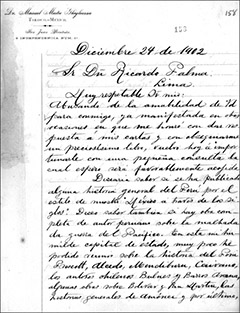 Dr. Manuel Mestre Ghigliazza
Tabasco México.
San Juan Bautista
2 Independencia Núm. 2
123
158
Diciembre 24 de 1902
Sr Dn Ricardo Palma
Lima.
Muy respetable Sr mio:
Abusando de la amabilidad de Ud
para conmigo, ya manifestada en otras
ocasiones en que me honró con dar res
puesta a mis cartas y con obsequiarme
un preciosísimo libro, vuelvo hoy á impor
tunarle con una pequeña consulta la
cual espero será favorablemente acogida
Desearia saber si se ha publicado
alguna historia general del Perú por el
estilo de nuestro "México á través de los si
glos". Deseo saber tambien si hay obra com
pleta de autor peruano sobre la malhada
da guerra del Pacífico. Con esta mi hu
milde capital de estado, muy poco he
podido reunir sobre la historia del Perú
Prescott, Alcedo, Mendiburu, Caivano,
los autores chilenos Bulnes y Barros Arana,
algunas obras sobre Bolívar y San Martín, las
historias generales de América y, por último,